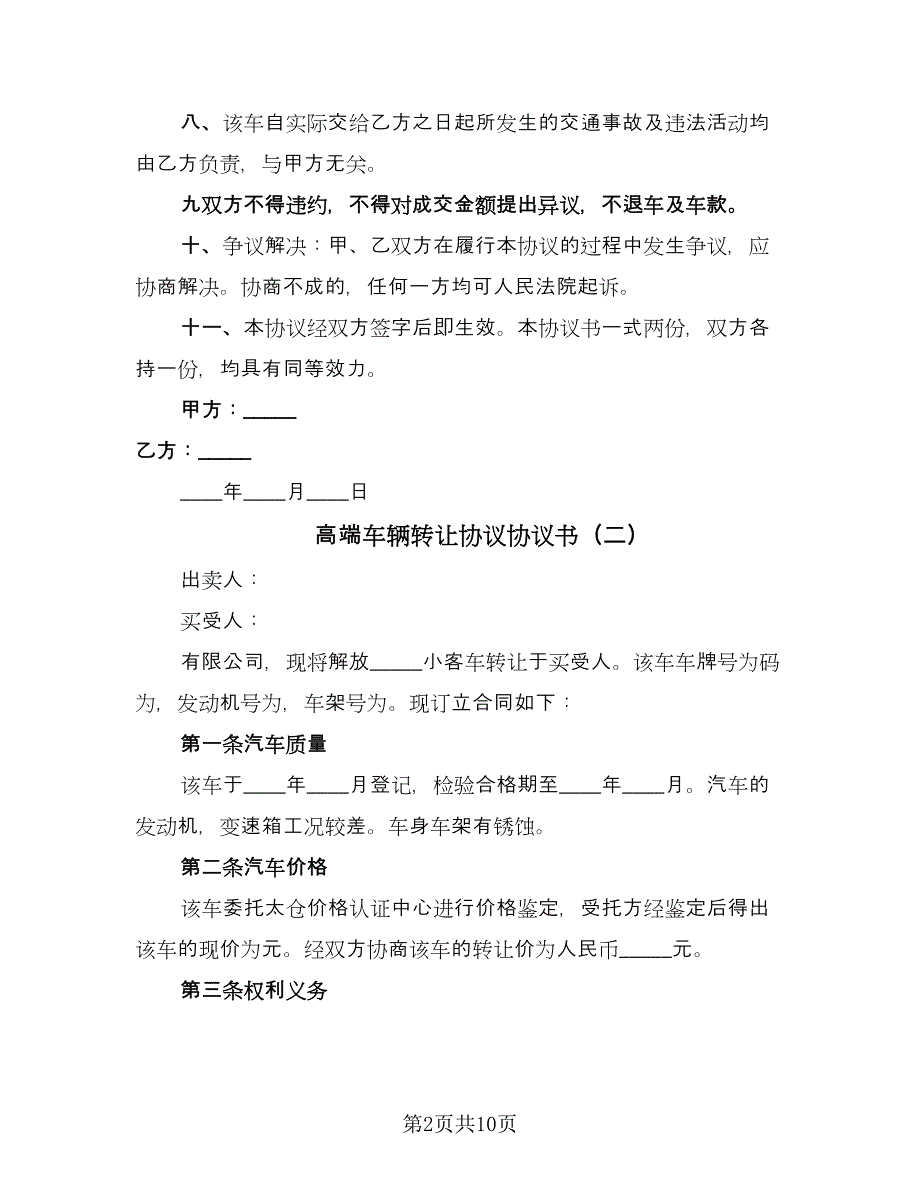 八、该车自实际交给乙方之日起所发生的交通事故及违法活动均
由乙方负责，与甲方无关。
九双方不得违约，不得对成交金额提出异议，不退车及车款。
十、争议解决：甲、乙双方在履行本协议的过程中发生争议，应
协商解决。协商不成的，任何一方均可人民法院起诉。
十一、本协议经双方签字后即生效。本协议书一式两份，双方各
持一份，均具有同等效力。
甲方：_____
乙方：_____
____年____月____日
高端车辆转让协议协议书（二）
出卖人：
买受人：
有限公司，现将解放_____小客车转让于买受人。该车车牌号为码
为，发动机号为，车架号为。现订立合同如下：
第一条汽车质量
该车于____年____月登记，检验合格期至____年____月。汽车的
发动机，变速箱工况较差。车身车架有锈蚀。
第二条汽车价格
该车委托太仓价格认证中心进行价格鉴定，受托方经鉴定后得出
该车的现价为元。经双方协商该车的转让价为人民币_____元。
第三条权利义务
第2页共10页